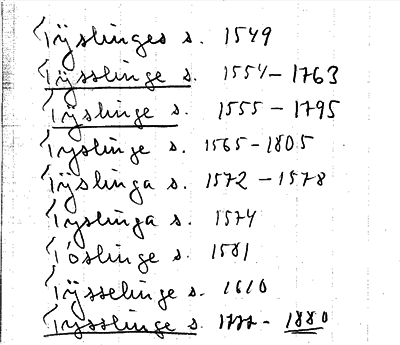 Tÿslinges s. 1549
Tÿsslinge s. 1554-1763
Tÿslinge s. 1555-1795
Tyslinge s. 1565-1805
Tÿslinga s. 1572-1578
Tyslinga s. 1574
Töslinge s. 1581
Tÿsselinge s. 1610
Tysslinge s. 1777-1880